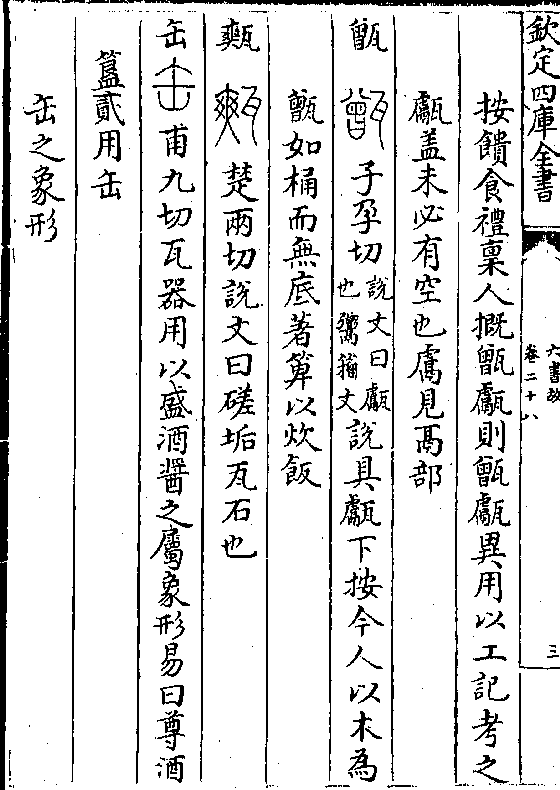 欽定四庫全書
六書故
卷二十八
三
按饋食禮稟人摡甑甗則甑甗異用以工記考之
甗蓋未必有空也鬳見鬲部
甑 子孕切說文曰甗也鬵籀文說具甗下按今人以木為
甑如桶而無底著箅以炊飯
㼽 楚兩切說文曰磋垢瓦石也
缶 甫九切瓦器用以盛酒醬之屬象形易曰尊酒
簋貳用缶
缶之象形